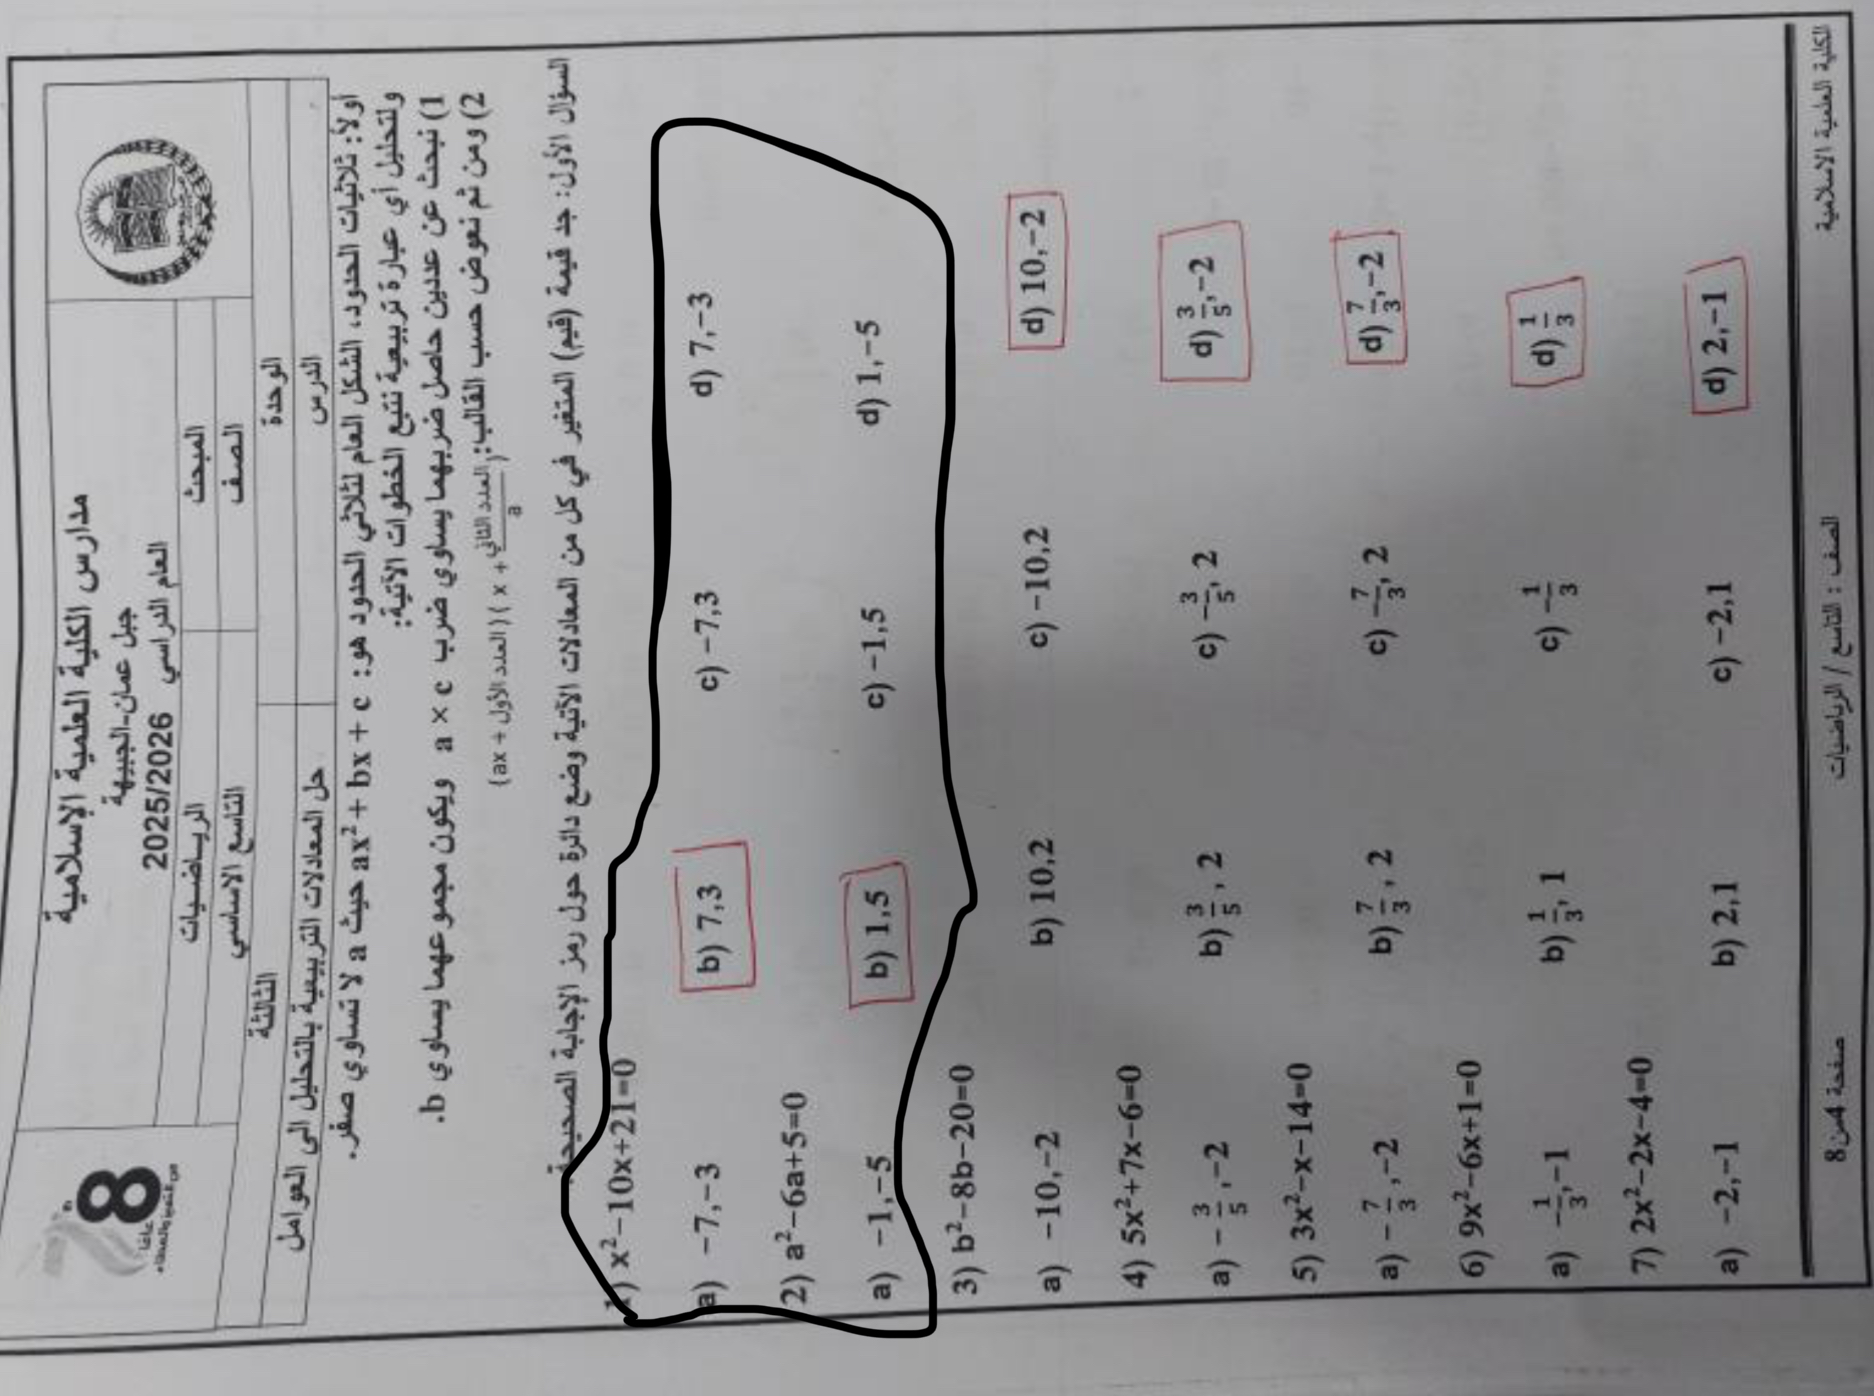 مدارس الكلية العلمية الإسلامية
جبل عمان-الجبيهة
العام الدراسي 2025/2026
8
عاما
من التميز والعطاء
المبحث الرياضيات
الصف التاسع الاساسي
الوحدة الثالثة
الدرس حل المعادلات التربيعية بالتحليل الى العوامل
أولاً: ثلاثيات الحدود، الشكل العام لثلاثي الحدود هو: ax²+ bx + c حيث a لا تساوي صفر.
ولتحليل أي عبارة تربيعية نتبع الخطوات الآتية:
1) نبحث عن عددين حاصل ضربهما يساوي ضرب a × c ويكون مجموعهما يساوي b.
2) ومن ثم نعوض حسب القالب: (ax + العدد الأول) ( x + العدد الثاني/a )
السؤال الأول: جد قيمة (قيم) المتغير في كل من المعادلات الآتية وضع دائرة حول رمز الإجابة الصحيحة
1) x²−10x+21=0
a) −7,−3 b) 7,3 c) −7,3 d) 7,−3
2) a²−6a+5=0
a) −1,−5 b) 1,5 c) −1,5 d) 1,−5
3) b²−8b−20=0
a) −10,−2 b) 10,2 c) −10,2 d) 10,−2
4) 5x²+7x−6=0
a) −3/5,−2 b) 3/5, 2 c) −3/5, 2 d) 3/5,−2
5) 3x²−x−14=0
a) −7/3,−2 b) 7/3, 2 c) −7/3, 2 d) 7/3,−2
6) 9x²−6x+1=0
a) −1/3,−1 b) 1/3, 1 c) −1/3 d) 1/3
7) 2x²−2x−4=0
a) −2,−1 b) 2,1 c) −2,1 d) 2,−1
الكلية العلمية الاسلامية الصف : التاسع / الرياضيات صفحة 4من8